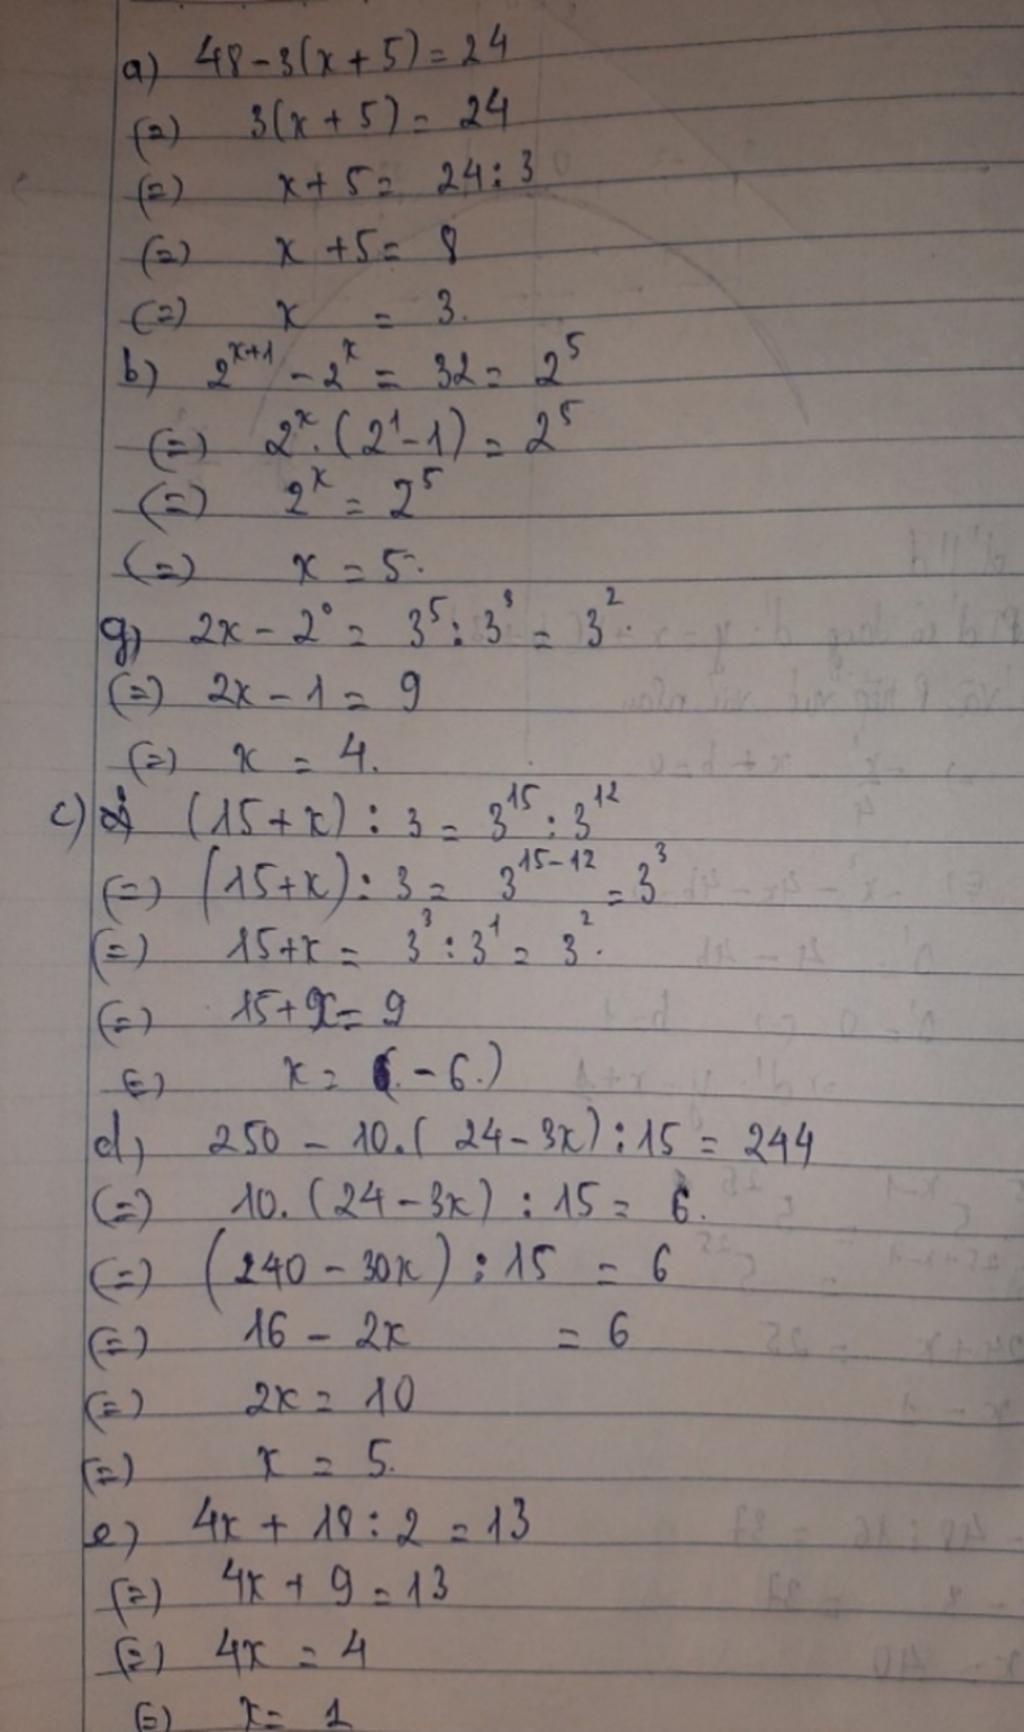 a) 48 - 3(x + 5) = 24
(=) 3(x + 5) = 24
(=) x + 5 = 24 : 3
(=) x + 5 = 8
(=) x = 3.
b) 2^{x+1} - 2^x = 32 = 2^5
(=) 2^x . (2^1 - 1) = 2^5
(=) 2^x = 2^5
(=) x = 5.
g) 2x - 2^0 = 3^5 : 3^3 = 3^2.
(=) 2x - 1 = 9
(=) x = 4.
c) (15 + x) : 3 = 3^{15} : 3^{12}
(=) (15 + x) : 3 = 3^{15-12} = 3^3
(=) 15 + x = 3^3 : 3^1 = 3^2.
(=) 15 + x = 9
(=) x = (-6.)
d) 250 - 10.(24 - 3x) : 15 = 244
(=) 10.(24 - 3x) : 15 = 6.
(=) (240 - 30x) : 15 = 6
(=) 16 - 2x = 6
(=) 2x = 10
(=) x = 5.
e) 4x + 18 : 2 = 13
(=) 4x + 9 = 13
(=) 4x = 4
(=) x = 1